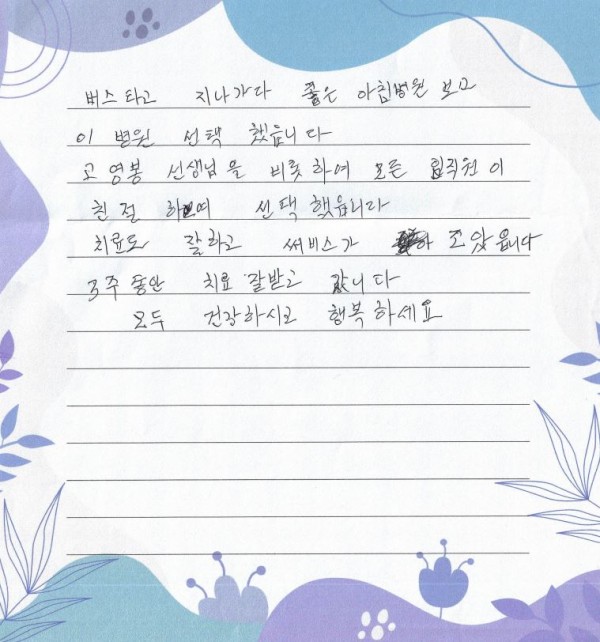 버스타고 지나가다 좋은 아침병원 보고
이 병원 선택 했읍니다
고영봉 선생님을 비롯하여 모든 임직원이
친절 하여 선택했읍니다
치료도 잘하고 써비스가 조았읍니다
3주동안 치료 잘받고 갑니다
모두 건강하시고 행복하세요